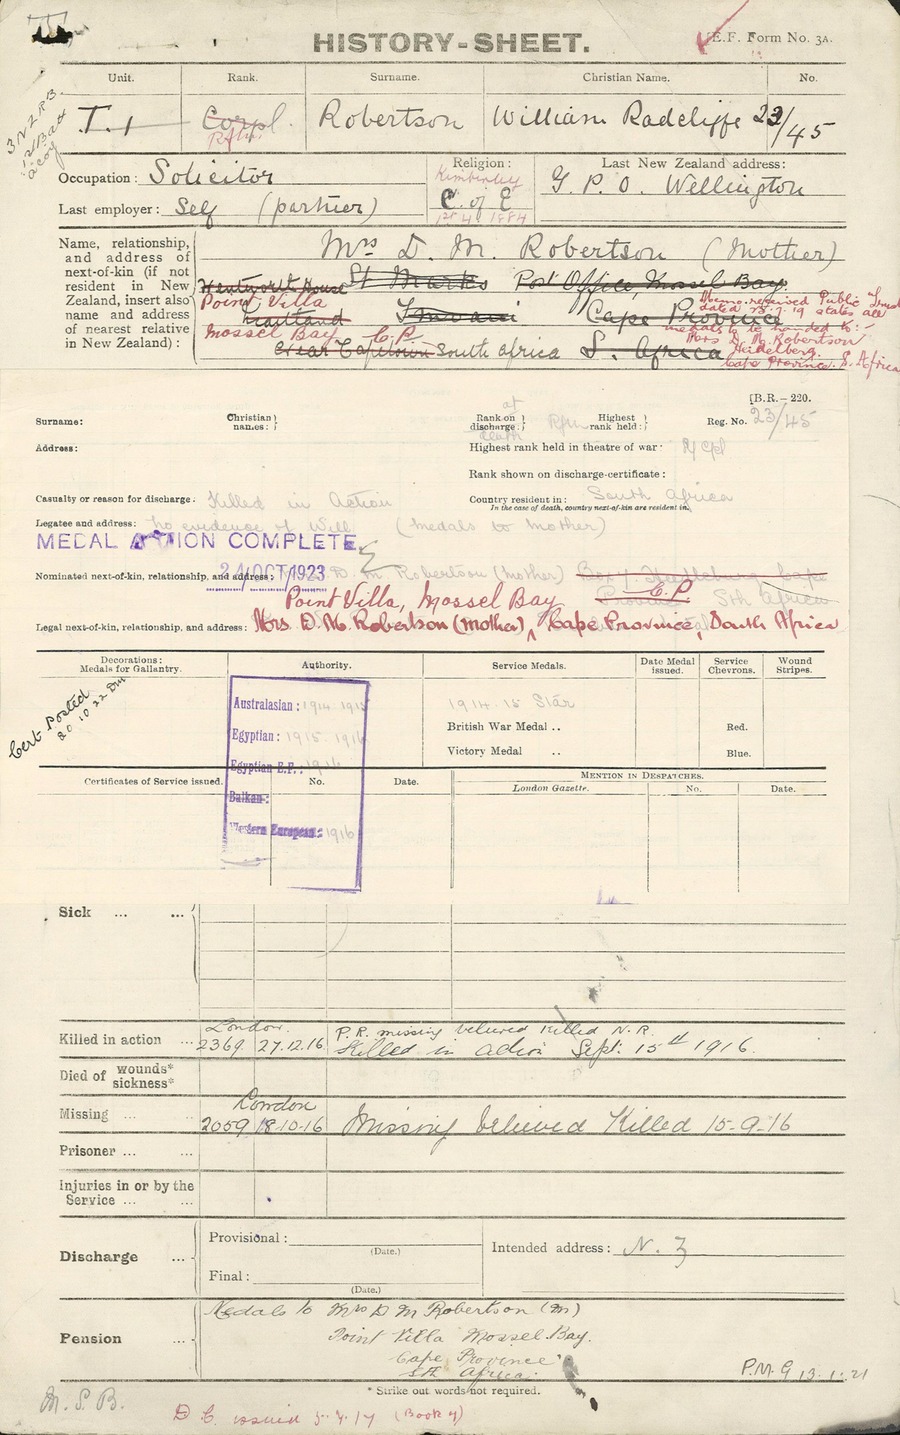 HISTORY-SHEET.
E.F. Form No. 3A.
Unit. Rank. Surname. Christian Name. No.
3 N Z R B
1st Batt
a coy
T. 1 Corpl. Robertson William Radcliffe 23/45
Rfm.
Occupation: Solicitor
Religion: C. of E
Kimberley
1884
Last New Zealand address:
G. P. O. Wellington
Last employer: Self (partner)
Name, relationship, and address of next-of-kin (if not resident in New Zealand, insert also name and address of nearest relative in New Zealand):
Mrs D. M. Robertson (Mother)
Wentworth House St Marks Post Office, Mossel Bay.
Point Villa Cape Province
Mossel Bay. C.P.
near Capetown South Africa S. Africa
Memo. received Public Trust
dated 25.7.19 states all
medals to be handed to:-
Mrs D. M. Robertson
Heidelberg.
Cape Province. S. Africa
[B.R.—220.
Surname: Christian names: Rank on discharge: Highest rank held: Reg. No. 23/45
at death Rfm
Address: Highest rank held in theatre of war:
Rank shown on discharge-certificate:
Casualty or reason for discharge: Killed in Action Country resident in: South Africa
In the case of death, country next-of-kin are resident in.
Legatee and address: no evidence of Will (medals to mother)
MEDAL ACTION COMPLETE
24 OCT 1923
Nominated next-of-kin, relationship, and address: D. M Robertson (mother) Box 7. Heidelburg Cape
Province Sth Africa
Point Villa, Mossel Bay C.P
Legal next-of-kin, relationship, and address: Mrs D. M. Robertson (mother), Cape Province, South Africa
Decorations: Medals for Gallantry. Authority. Service Medals. Date Medal issued. Service Chevrons. Wound Stripes.
Cert Posted
20 10 22
Australasian: 1914 1915 1914.15 Star
Egyptian: 1915. 1916 British War Medal .. Red.
Egyptian E.F.: 1916 Victory Medal .. Blue.
Certificates of Service issued. No. Date. Mention in Despatches.
London Gazette. No. Date.
Balkan:
Western European: 1916
Sick ... ...
Killed in action ... London. 2369 27.12.16 P.R. missing believed killed N.R.
Killed in action Sept: 15th 1916.
Died of wounds* sickness*
Missing ... ... London 2059 18-10-16 Missing believed Killed 15-9-16
Prisoner ... ...
Injuries in or by the Service ... ...
Discharge ... Provisional: (Date.) Intended address: N. Z
Final: (Date.)
Pension ... Medals to Mrs D M Robertson (M)
Point Villa Mossel Bay.
Cape Province
Sth Africa.
P.M.G 13.1.21
* Strike out words not required.
M. S. B.
D C. issued 5.7.17 (Book 9)